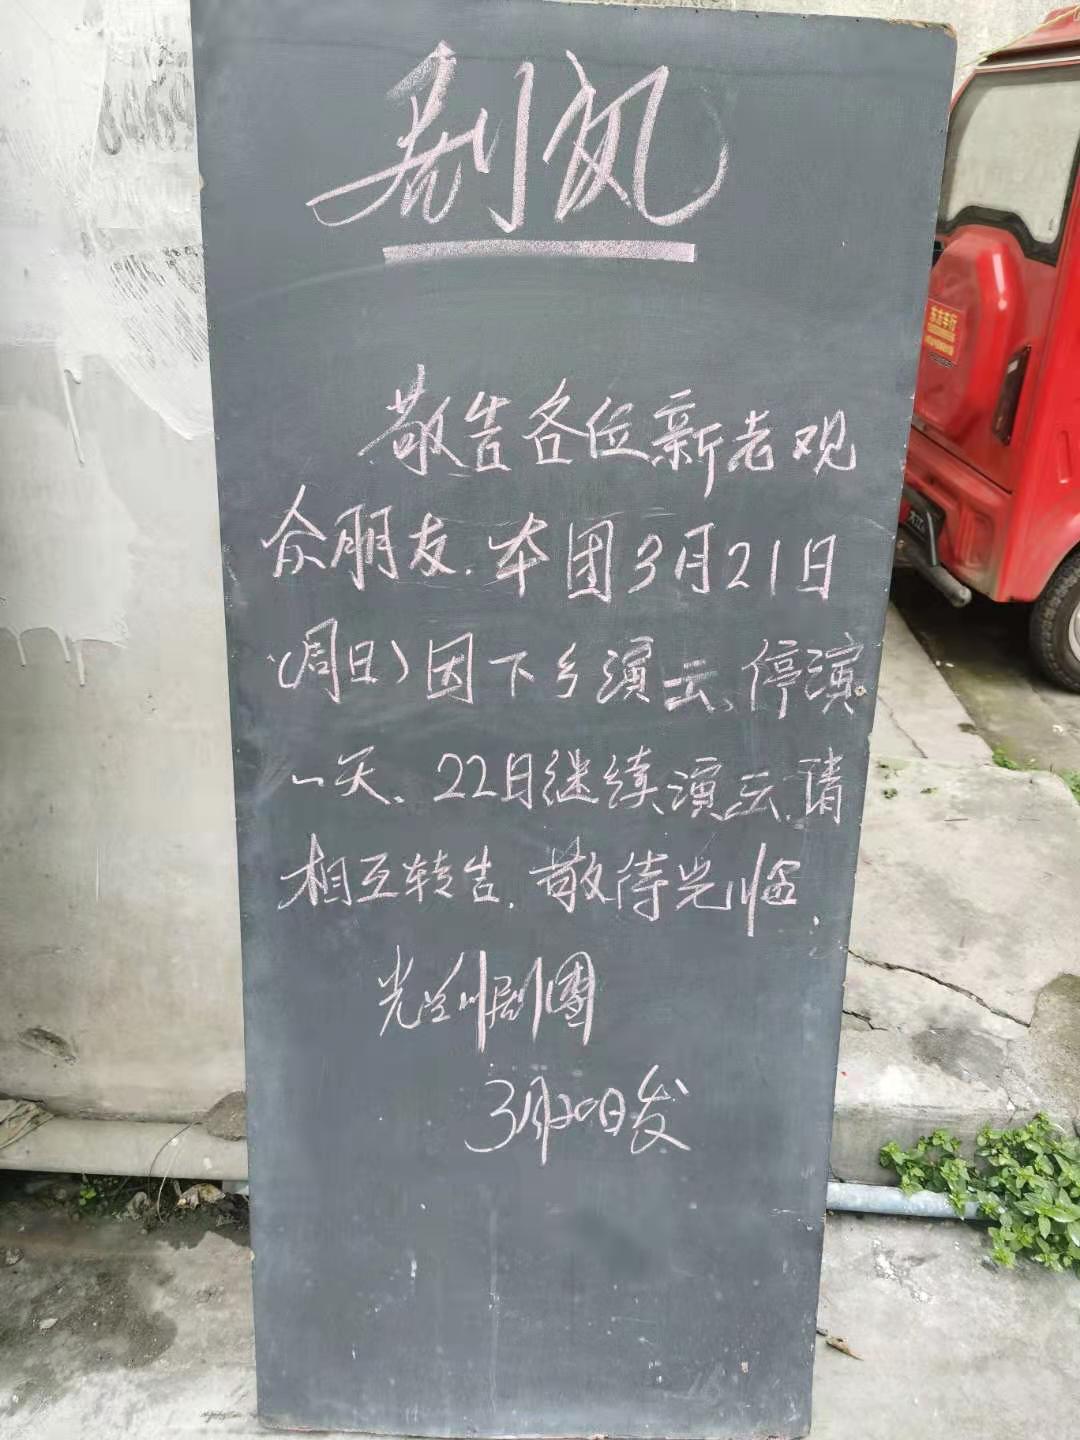 剧讯
敬告各位新老观
众朋友.本团3月21日
(周日)因下乡演出、停演
一天、22日继续演出、请
相互转告.敬待光临.
光兰川剧團
3月20日发
东方车行